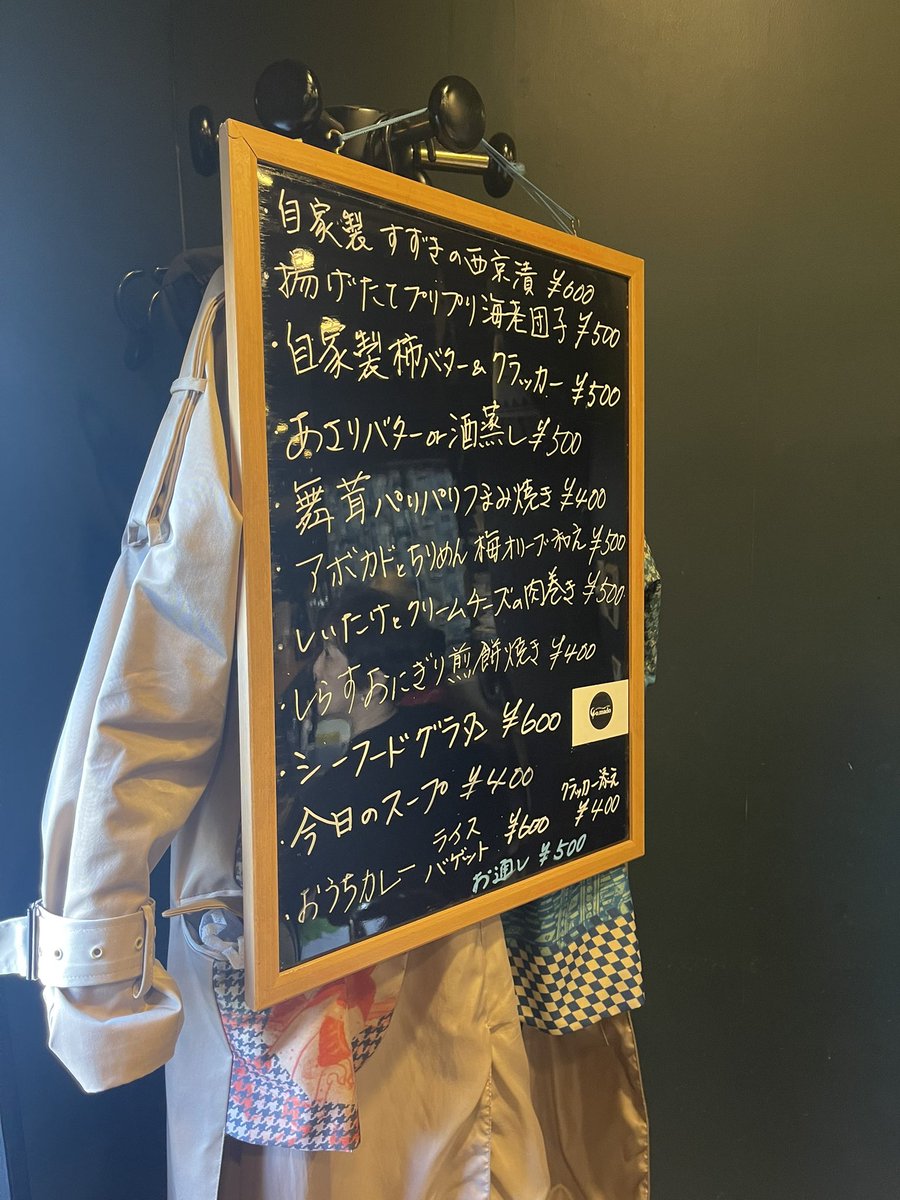 ・自家製 すずきの西京漬 ¥600
揚げたてプリプリ海老団子 ¥500
・自家製 柿バター& クラッカー ¥500
・あさりバター or 酒蒸し ¥500
・舞茸パリパリつまみ焼き ¥400
・アボカドとちりめん 梅オリーブ和え ¥500
・しいたけとクリームチーズの肉巻き ¥500
・しらすおにぎり煎餅焼き ¥400
・シーフードグラタン ¥600
・今日のスープ ¥400
・おうちカレー ライス バゲット ¥600
クラッカー添え ¥400
お通し ¥500